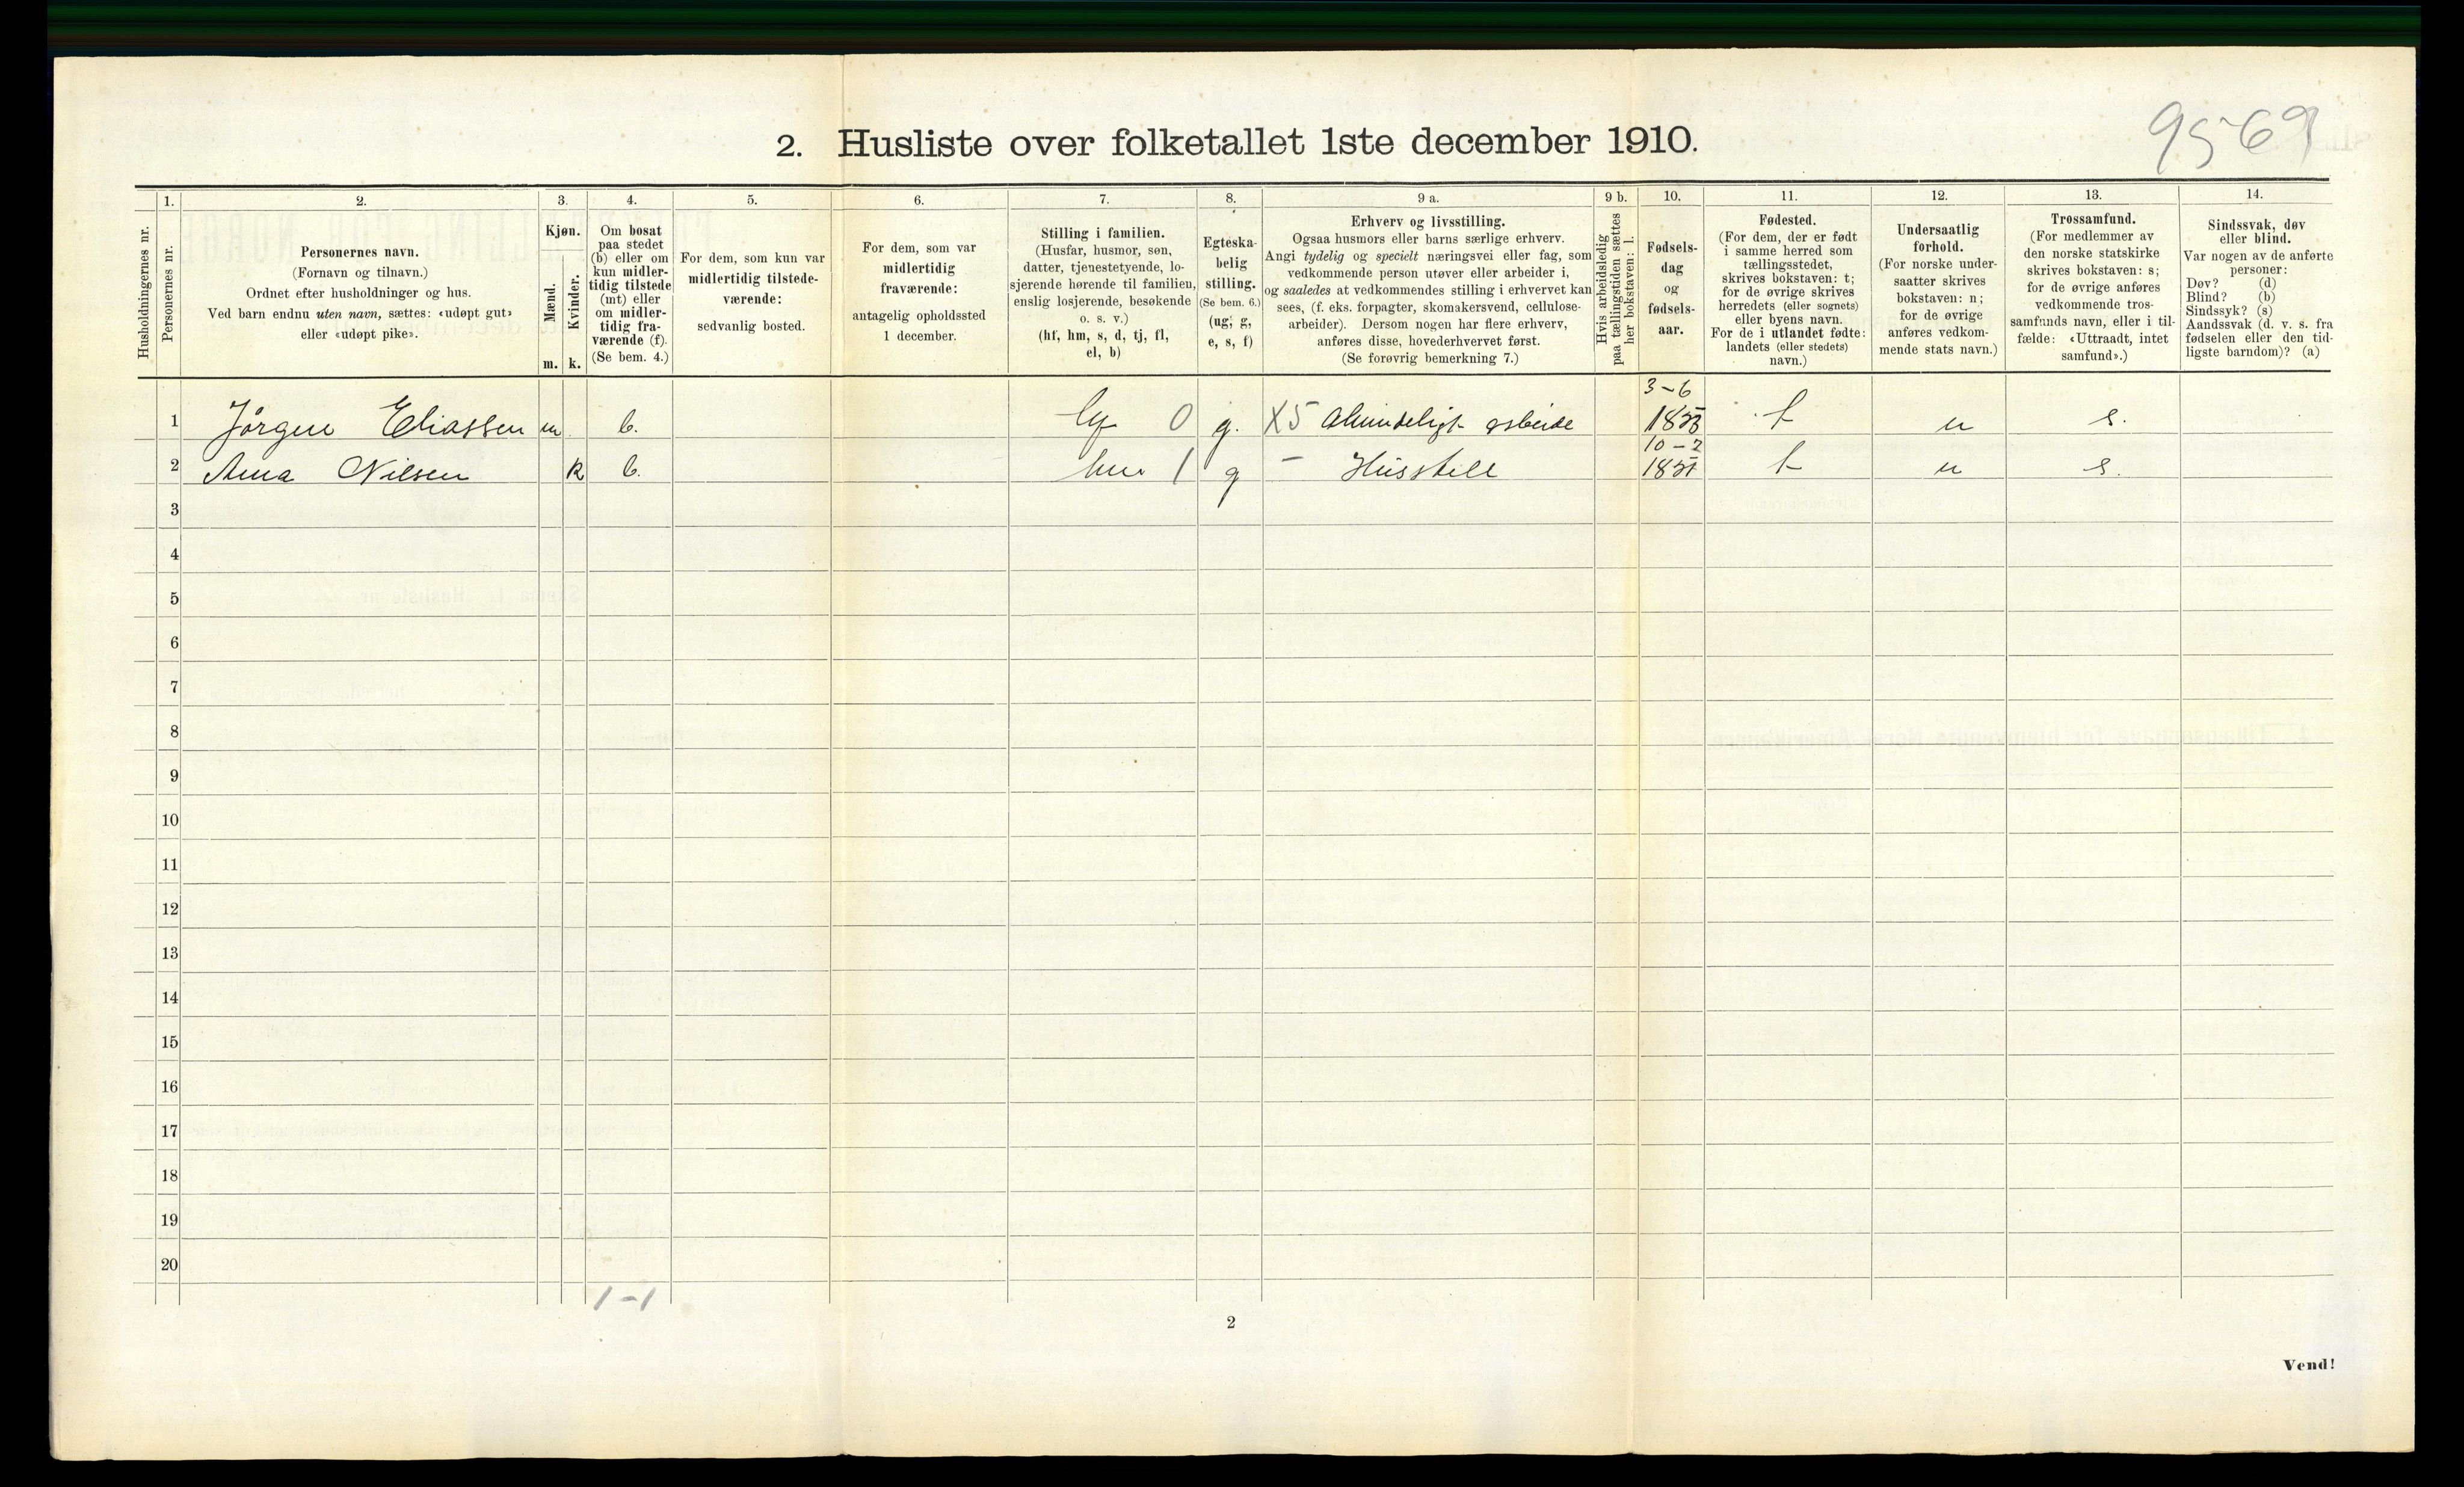 9569
2. Husliste over folketallet 1ste december 1910.
1. 2. 3. 4. 5. 6. 7. 8. 9 a. 9 b. 10. 11. 12. 13. 14.
Husholdningernes nr.
Personernes nr.
Personernes navn.
(Fornavn og tilnavn.)
Ordnet efter husholdninger og hus.
Ved barn endnu uten navn, sættes: «udøpt gut»
eller «udøpt pike».
Kjøn.
Mænd.
Kvinder.
m. k.
Om bosat
paa stedet
(b) eller om
kun midler-
tidig tilstede
(mt) eller
om midler-
tidig fra-
værende (f).
(Se bem. 4.)
For dem, som kun var
midlertidig tilstede-
værende:
sedvanlig bosted.
For dem, som var
midlertidig
fraværende:
antagelig opholdssted
1 december.
Stilling i familien.
(Husfar, husmor, søn,
datter, tjenestetyende, lo-
sjerende hørende til familien,
enslig losjerende, besøkende
o. s. v.)
(hf, hm, s, d, tj, fl,
el, b)
Egteska-
belig
stilling.
(Se bem. 6.)
(ug, g,
e, s, f)
Erhverv og livsstilling.
Ogsaa husmors eller barns særlige erhverv.
Angi tydelig og specielt næringsvei eller fag, som
vedkommende person utøver eller arbeider i,
og saaledes at vedkommendes stilling i erhvervet kan
sees, (f. eks. forpagter, skomakersvend, cellulose-
arbeider). Dersom nogen har flere erhverv,
anføres disse, hovederhvervet først.
(Se forøvrig bemerkning 7.)
Hvis arbeidsledig
paa tællingstiden sættes
her bokstaven: l.
Fødsels-
dag
og
fødsels-
aar.
Fødested.
(For dem, der er født
i samme herred som
tællingsstedet,
skrives bokstaven: t;
for de øvrige skrives
herredets (eller sognets)
eller byens navn.
For de i utlandet fødte:
landets (eller stedets)
navn.)
Undersaatlig
forhold.
(For norske under-
saatter skrives
bokstaven: n;
for de øvrige
anføres vedkom-
mende stats navn.)
Trossamfund.
(For medlemmer av
den norske statskirke
skrives bokstaven: s;
for de øvrige anføres
vedkommende tros-
samfunds navn, eller i til-
fælde: «Uttraadt, intet
samfund».)
Sindssvak, døv
eller blind.
Var nogen av de anførte
personer:
Døv? (d)
Blind? (b)
Sindssyk? (s)
Aandssvak (d. v. s. fra
fødselen eller den tid-
ligste barndom)? (a)
3-6
1 Jörgen Eliassen m b. hf 0 g. X5 Almindeligt arbeide t n s.
2 Anna Nilsen k b. hm 1 g - Husstell t n s.
3
4
5
6
7
8
9
10
11
12
13
14
15
16
17
18
19
20
1-1
2
Vend!